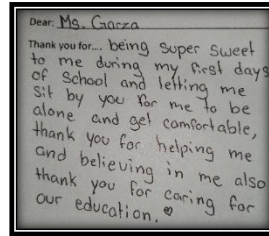 Dear: Ms. Garza
Thank you for.... being super sweet
to me during my first days
of School and letting me
sit by you for me to be
alone and get comfortable,
thank you for helping me
and believing in me also
thank you for caring for
our education. ♥